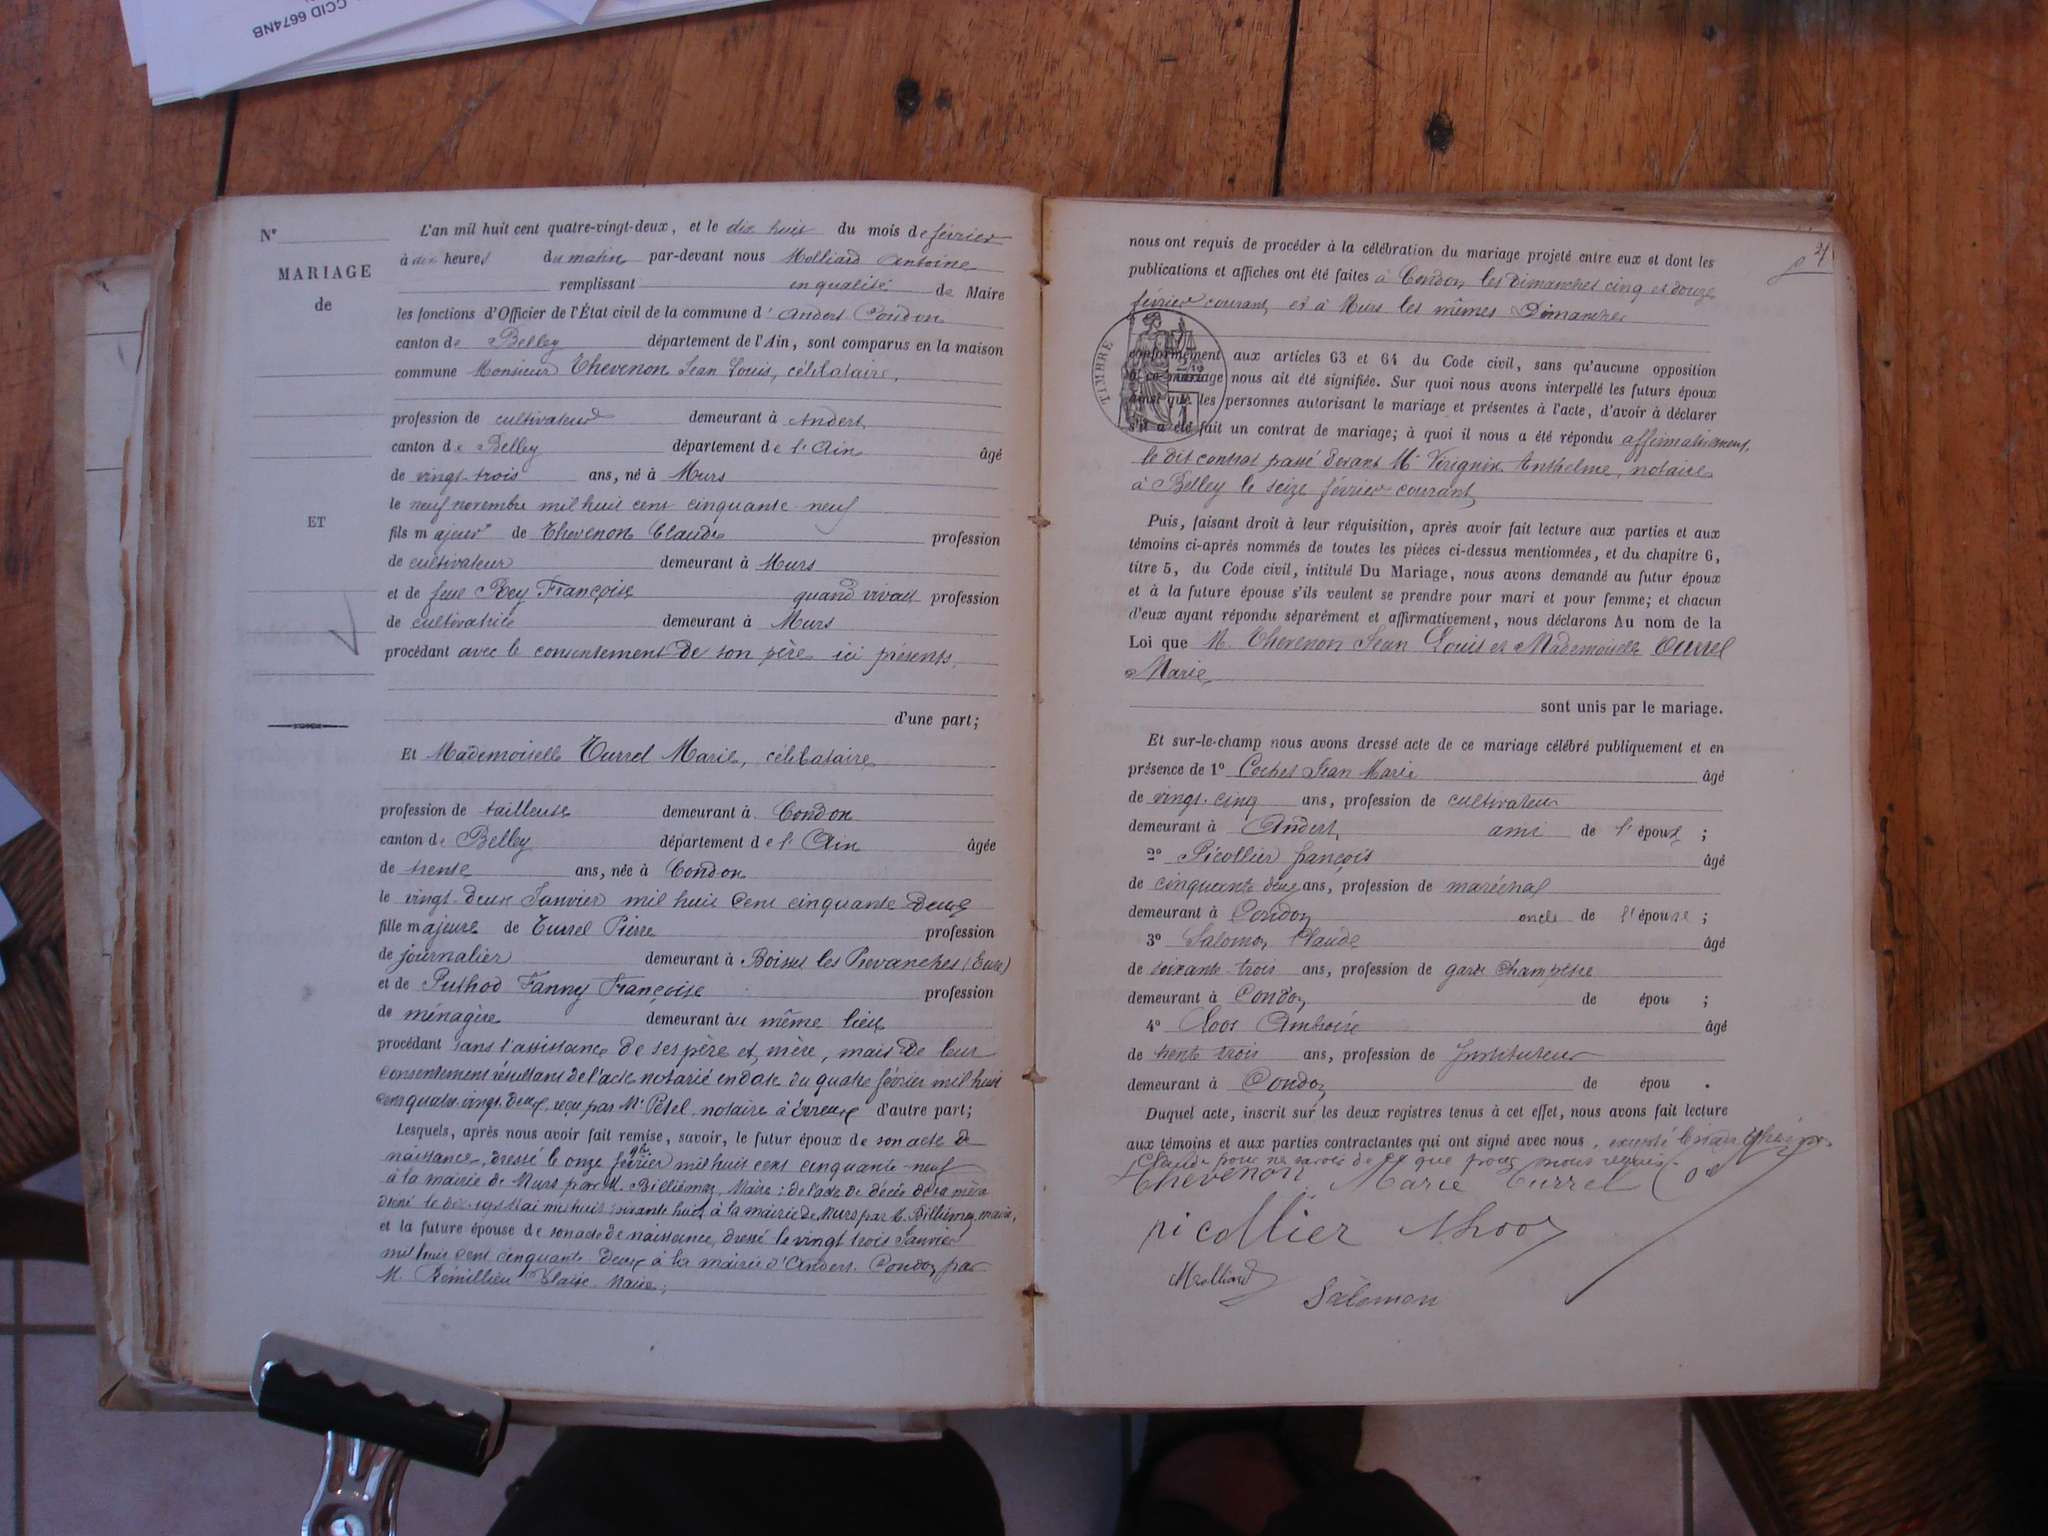 CCID 6674NB
N°
MARIAGE
de
ET
L'an mil huit cent quatre-vingt-deux, et le dix huit du mois de février
à dix heures du matin par-devant nous Molliard Antoine
remplissant en qualité de Maire
les fonctions d'Officier de l'État civil de la commune d'Andert Condon
canton de Belley département de l'Ain, sont comparus en la maison
commune Monsieur Thevenon Jean Louis, célibataire,
profession de cultivateur demeurant à Andert
canton de Belley département de l'Ain âgé
de vingt-trois ans, né à Murs
le neuf novembre mil huit cent cinquante neuf
fils majeur de Thevenon Claude profession
de cultivateur demeurant à Murs
et de feue Rey Françoise quand vivait profession
de cultivatrice demeurant à Murs
procédant avec le consentement de son père ici présents,
d'une part;
Et Mademoiselle Turrel Marie, célibataire
profession de tailleuse demeurant à Condon
canton de Belley département de l'Ain âgée
de trente ans, née à Condon
le vingt-deux Janvier mil huit cent cinquante deux
fille majeure de Turrel Pierre profession
de journalier demeurant à Boisset les Prevanches (Eure)
et de Puthod Fanny Françoise profession
de ménagère demeurant au même lieu
procédant sans l'assistance de ses père et mère, mais de leur
consentement résultant de l'acte notarié en date du quatre février mil huit
cent quatre-vingt-deux, reçu par Me Petel, notaire à Evreux d'autre part;
Lesquels, après nous avoir fait remise, savoir, le futur époux de son acte de
naissance, dressé le onze février 9bre mil huit cent cinquante-neuf
à la mairie de Murs par M. Billiémaz, Maire; de l'acte de décès de sa mère
dressé le dix-sept Mai mil huit soixante huit à la mairie de Murs par M. Billiémaz, maire,
et la future épouse de son acte de naissance, dressé le vingt trois Janvier
mil huit cent cinquante deux à la mairie d'Andert-Condon par
M. Bémillieu Blaise, Maire;
4
nous ont requis de procéder à la célébration du mariage projeté entre eux et dont les
publications et affiches ont été faites à Condon les Dimanches cinq et douze
février courant, et à Murs les mêmes Dimanches
TIMBRE
conformément aux articles 63 et 64 du Code civil, sans qu'aucune opposition
à ce mariage nous ait été signifiée. Sur quoi nous avons interpellé les futurs époux
ainsi que les personnes autorisant le mariage et présentes à l'acte, d'avoir à déclarer
s'il a été fait un contrat de mariage; à quoi il nous a été répondu affirmativement,
le dit contrat passé devant Me Vérignix Anthelme, notaire
à Belley le seize février courant
Puis, faisant droit à leur réquisition, après avoir fait lecture aux parties et aux
témoins ci-après nommés de toutes les pièces ci-dessus mentionnées, et du chapitre 6,
titre 5, du Code civil, intitulé Du Mariage, nous avons demandé au futur époux
et à la future épouse s'ils veulent se prendre pour mari et pour femme; et chacun
d'eux ayant répondu séparément et affirmativement, nous déclarons Au nom de la
Loi que M. Thevenon Jean Louis et Mademoiselle Turrel
Marie
sont unis par le mariage.
Et sur-le-champ nous avons dressé acte de ce mariage célébré publiquement et en
présence de 1° Cochet Jean Marie âgé
de vingt-cinq ans, profession de cultivateur
demeurant à Andert, ami de l'époux;
2° Picollier françois âgé
de cinquante deux ans, profession de maréchal
demeurant à Condon oncle de l'épouse;
3° Salomon Claude âgé
de soixante-trois ans, profession de garde champêtre
demeurant à Condon de épou ;
4° Ambroise âgé
de trente trois ans, profession de Instituteur
demeurant à Condon de épou .
Duquel acte, inscrit sur les deux registres tenus à cet effet, nous avons fait lecture
aux témoins et aux parties contractantes qui ont signé avec nous, excepté
Claude pour ne savoir de ce que nous requis
Thevenon Marie Turrel
picollier
Molliard
Salomon